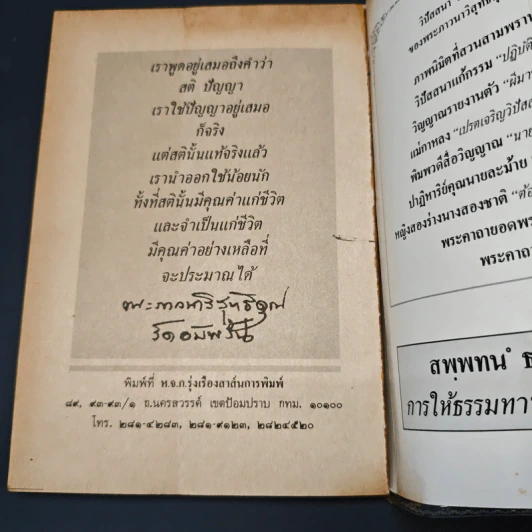 เราพูดอยู่เสมอถึงคำว่า
สติ ปัญญา
เราใช้ปัญญาอยู่เสมอ
ก็จริง
แต่สตินั้นแท้จริงแล้ว
เรานำออกใช้น้อยนัก
ทั้งที่สตินั้นมีคุณค่าแก่ชีวิต
และจำเป็นแก่ชีวิต
มีคุณค่าอย่างเหลือที่
จะประมาณได้
พระภาวนาวิสุทธิคุณ
วัดอัมพวัน
พิมพ์ที่ ห.จ.ก.รุ่งเรืองสาส์นการพิมพ์
๘๙, ๙๓-๙๓/๑ ถ.นครสวรรค์ เขตป้อมปราบ กทม. ๑๐๑๐๐
โทร. ๒๘๑-๔๒๘๓, ๒๘๑-๙๑๒๓, ๒๘๒๔๕๒๐
วิปัสสนา
ของพระภาวนาวิสุทธิ
ภาพนิมิตที่สวนสามพราน
วิปัสสนาแก้กรรม "ปฏิบัติ
วิญญาณรายงานตัว "ผีมา
แม่กาหลง "เปรตเจริญวิปัส
พิมพวดีสื่อวิญญาณ "นาย
ปาฏิหาริย์คุณนายละม้าย
หญิงสองร่างนางสองชาติ "ต้อ
พระคาถายอดพร
พระคาถา
สพฺพทานํ ธ
การให้ธรรมทา